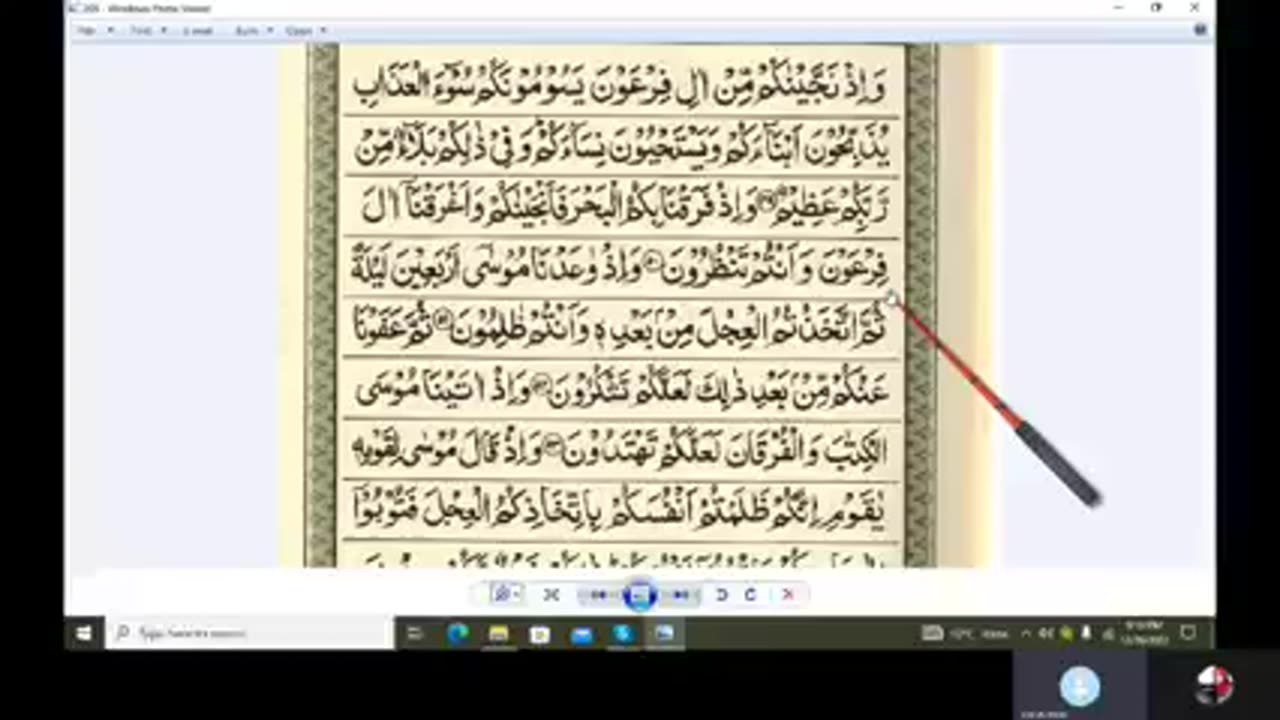 205 - Windows Photo Viewer
File Print E-mail Burn Open
وَاِذْ نَجَّيْنٰكُمْ مِّنْ اٰلِ فِرْعَوْنَ يَسُوْمُوْنَكُمْ سُوْٓءَ الْعَذَابِ
يُذَبِّحُوْنَ اَبْنَآءَكُمْ وَيَسْتَحْيُوْنَ نِسَآءَكُمْ وَفِيْ ذٰلِكُمْ بَلَآءٌ مِّنْ
رَّبِّكُمْ عَظِيْمٌ ۴۹ وَاِذْ فَرَقْنَا بِكُمُ الْبَحْرَ فَاَنْجَيْنٰكُمْ وَاَغْرَقْنَآ اٰلَ
فِرْعَوْنَ وَاَنْتُمْ تَنْظُرُوْنَ ۵۰ وَاِذْ وٰعَدْنَا مُوْسٰٓى اَرْبَعِيْنَ لَيْلَةً
ثُمَّ اتَّخَذْتُمُ الْعِجْلَ مِنْۢ بَعْدِهٖ وَاَنْتُمْ ظٰلِمُوْنَ ۵۱ ثُمَّ عَفَوْنَا
عَنْكُمْ مِّنْۢ بَعْدِ ذٰلِكَ لَعَلَّكُمْ تَشْكُرُوْنَ ۵۲ وَاِذْ اٰتَيْنَا مُوْسَى
الْكِتٰبَ وَالْفُرْقَانَ لَعَلَّكُمْ تَهْتَدُوْنَ ۵۳ وَاِذْ قَالَ مُوْسٰى لِقَوْمِهٖ
يٰقَوْمِ اِنَّكُمْ ظَلَمْتُمْ اَنْفُسَكُمْ بِاتِّخَاذِكُمُ الْعِجْلَ فَتُوْبُوْٓا
Type here to search